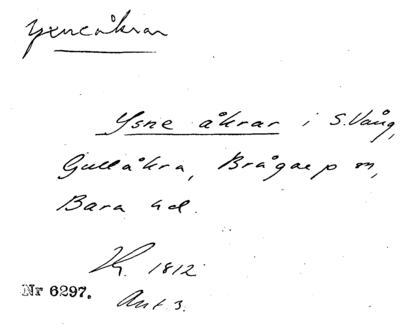 Yxneåkrar
Ysne åkrar i S. Vång,
Gullåkra, Brågarp sn,
Bara hd.
1812
Nr 6297. Akt 3.